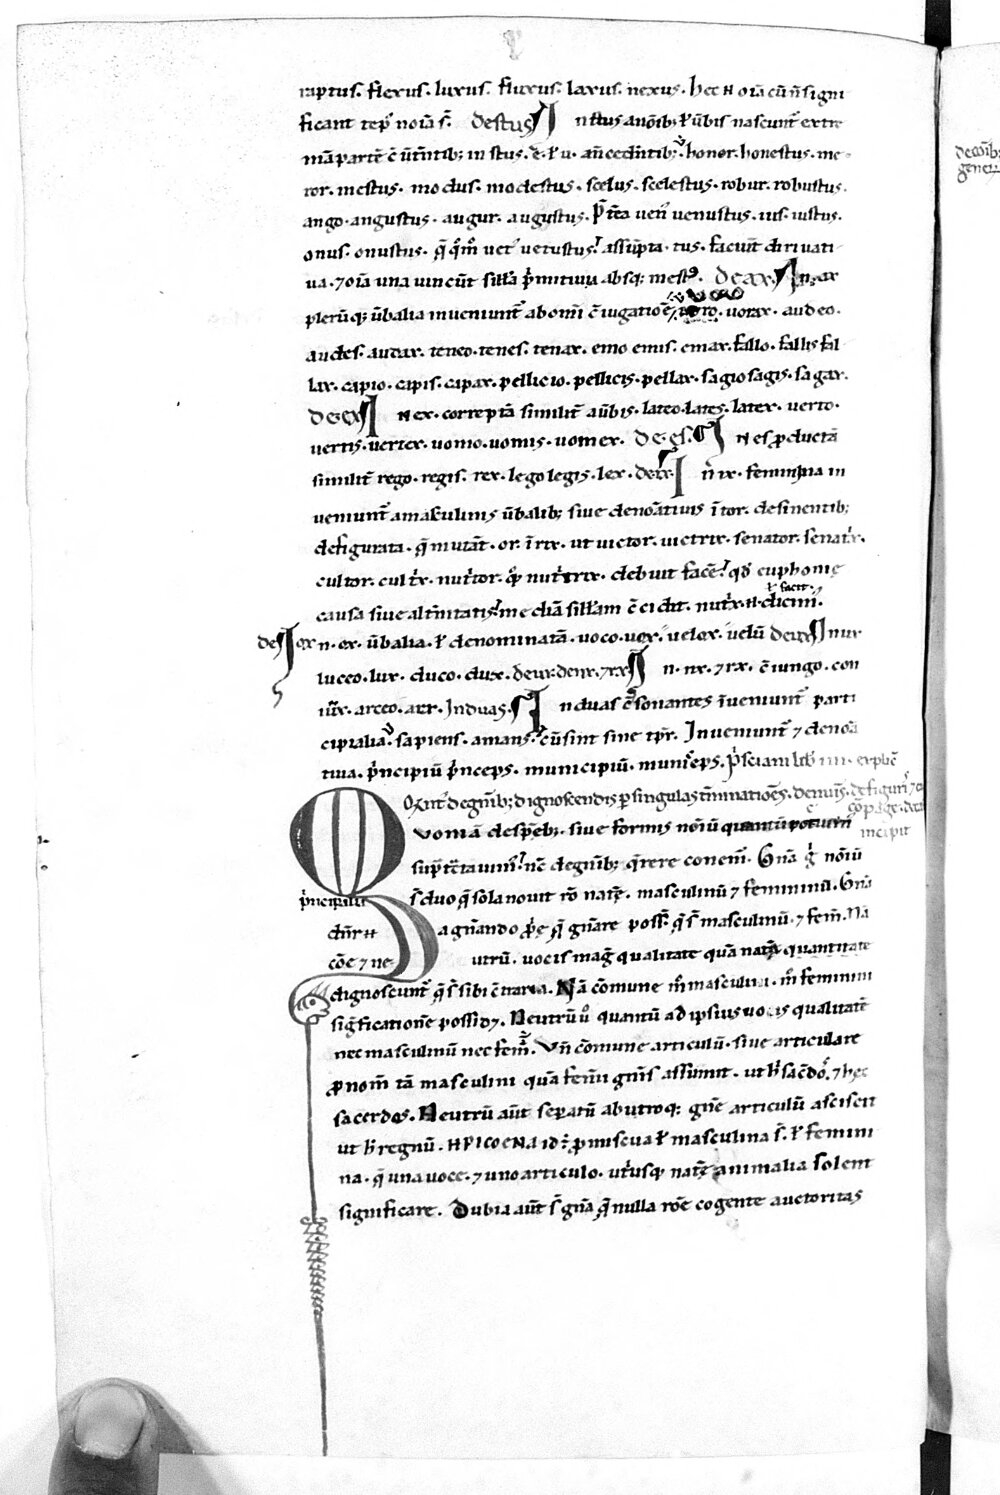 raptus. flexus. luxus. fluxus. laxus. nexus. hec n̄ oīa cū ñ signi
ficant tēp̄ noīa s̄. De stus In stus a noīb; ł u̅bis nascunt̄ extre
mā partē
in stus. e. ł u. añcedentib; honor. honestus. me
ror. mestus. modus. modestus. scelus. scelestus. robur. robustus.
ango. angustus. augur. augustus. p̄t̄ea ven̄ venustus. ius. iustus.
onus. onustus. q̄ q̊m̊ vet̄ vetustus! assūpta. tus. faciūt dirivati
va. ⁊ oīa una vincūt sillā p̄mitiva absq; mest9. De ax. In ax
plerūq; u̅balia inveniunt̄ ab om̄i c̄iugatiōe voro. vorax. audeo.
audes. audax. teneo. tenes. tenax. emo emis. emax. fallo. fallis fal
lax. capio. capis. capax. pellicio. pellicis. pellax. sagio sagis. sagax.
De ex In ex. correptā similit̄ a u̅bis. lateo. lates. latex. verto.
vertis. vertex. vomo. vomis. vomex. De es. In es p̱ductā
similit̄ rego. regis. rex. lego legis. lex. De ix In ix. feminina in
veniunt̄ a masculinis u̅balib; sive denoātivis ī tor. desinentib;
defigurata. q̄ mutāt. or. ī rix. ut victor. victrix. senator. senat̄x.
cultor. cult̄x. nut̄tor. q̄p̄ nut̄trix. debuit facē! q̄d euphonie
ł facit.
causa sive alt̄nitatis! mediā sillam c̄cidit. nut̄x. n̄. dicim̄.
De ox In. ox. u̅balia. ł denominatā. voco. vox. velox. velū De ux In ux
luceo. lux. duco. dux. De ux. de nx. ⁊ rx In. nx. ⁊ rx. c̄iungo. con
iūx. arceo. arx. In duas. s In duas c̄sonantes īveniunt̄ parti
cipialia. sapiens. amans. cū sint sine tp̄r. Inveniunt̄ ⁊ denoā
tiva. p̄ncipiū p̄nceps. municipiū. municeps. p̄sciani lib̄ IIII. explic̄
Oxit̄ de gn̄ib; dignoscendis p̱ singulas t̄minatiōes. de nūis. de figur̄ ⁊ eo
cōpage. lib
Qvoniā de sp̄eb;. sive formis noīū quantū potuim̄
incipit
sup̄ t̄ctavim̄! nc̄ de gn̄ib; q̄rere conem̄. Gn̄a g̊ noīū
p̄ncipalia s̄ duo q̄ sola novit rō nat̄e. masculinū ⁊ femininū. Gn̄a
dn̄r n̄ a gn̄ando p̄e q̄ gn̄are poss̄ q̄ s̄ masculinū. ⁊ fem̄. Nā
cōe ⁊ ne utrū. vocis mag̊ qualitate quā nat̄a quantitate
dignoscunt̄ q̄ s̄ sibi c̄traria. Nā cōmune m̊ masculini. m̊ feminini
sig̊ficationē possid⁊. Neutrū ů quantū ad ipsius vocis qualitatē
nec masculinū nec fem̄. Vn̄ cōmune articulū. sive articulare
p̱nom̄ tā masculini quā femi gn̄is assumit. ut h̄ sac̄dō. ⁊ hec
sacerdos. Neutrū aūt separatū ab utroq; gn̄e articulū asciscit
ut h̄ regnū. EPICOENA id ē p̱miscua ł masculina s̄. ł femini
na. q̄ una voce. ⁊ uno articulo. ut̄usq; nat̄e animalia solent
significare. Dubia aūt s̄ gn̄a q̄ nulla rōe cogente auctoritas